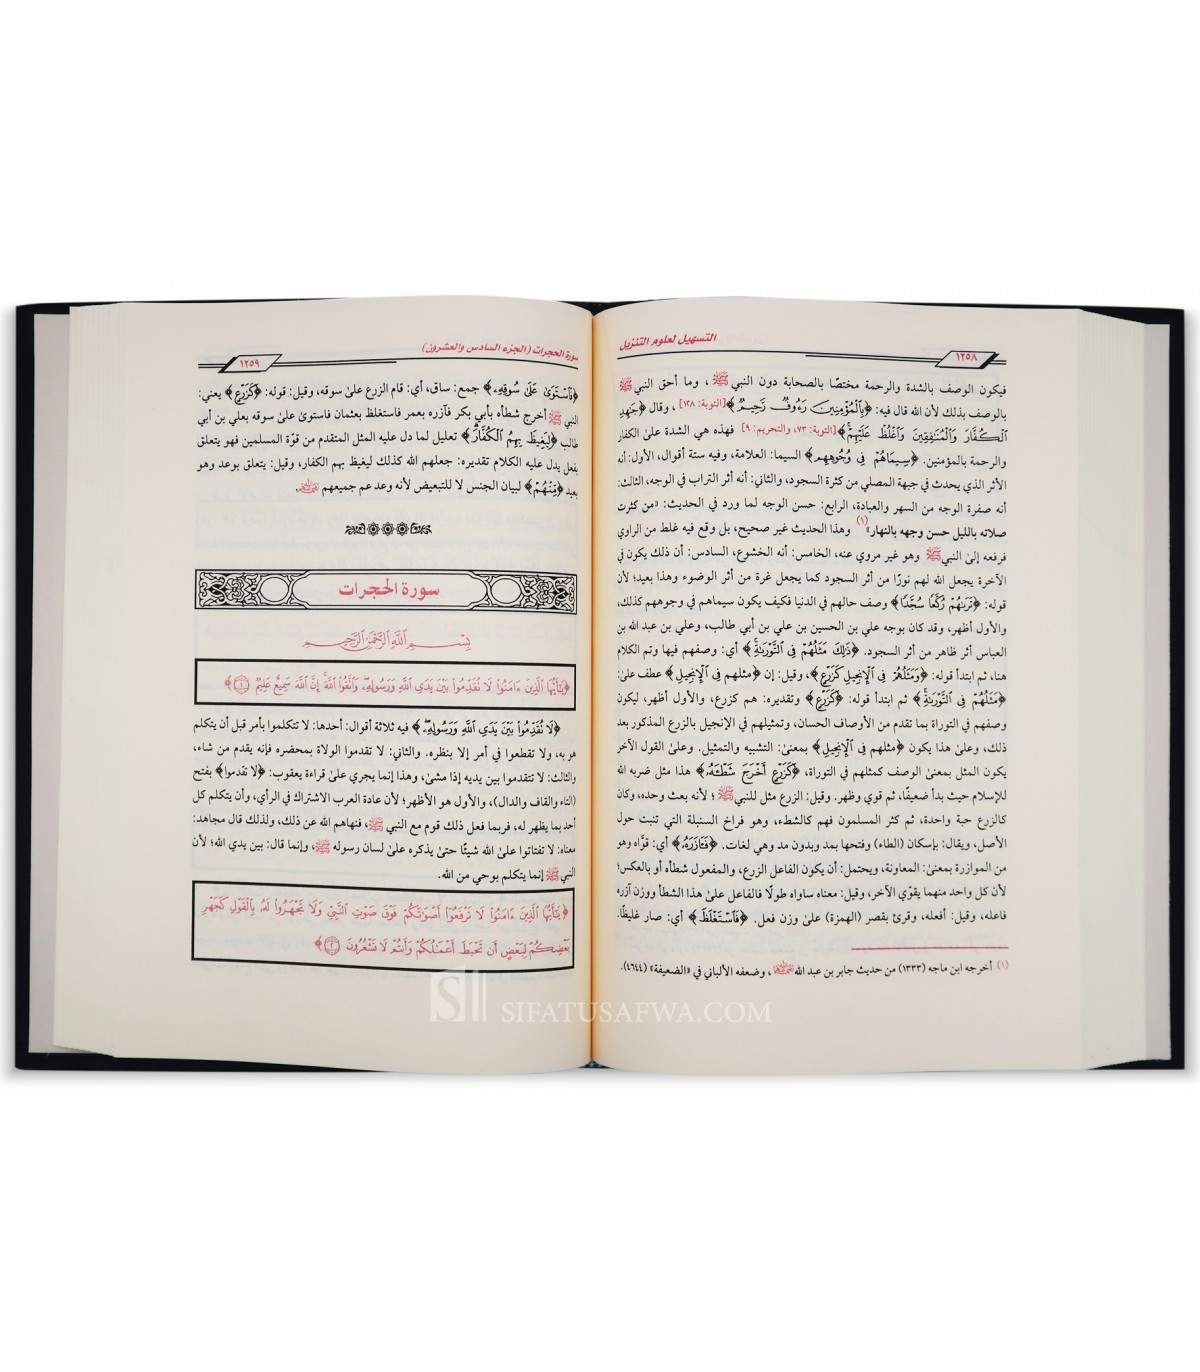 التسهيل لعلوم التنزيل
١٢٥٨
فيكون الوصف بالشدة والرحمة مختصًا بالصحابة دون النبي ﷺ، وما أحق النبي ﷺ
بالوصف بذلك لأن الله قال فيه: ﴿بِالْمُؤْمِنِينَ رَءُوفٌ رَّحِيمٌ﴾ [التوبة: ١٢٨]، وقال ﴿جَٰهِدِ
الْكُفَّارَ وَالْمُنَٰفِقِينَ وَاغْلُظْ عَلَيْهِمْ﴾ [التوبة: ٧٣، والتحريم: ٩] فهذه هي الشدة على الكفار
والرحمة بالمؤمنين. ﴿سِيمَاهُمْ فِي وُجُوهِهِم﴾ السيما: العلامة، وفيه ستة أقوال، الأول: أنه
الأثر الذي يحدث في جبهة المصلي من كثرة السجود، والثاني: أنه أثر التراب في الوجه، الثالث:
أنه صفرة الوجه من السهر والعبادة، الرابع: حسن الوجه لما ورد في الحديث: «من كثرت
صلاته بالليل حسن وجهه بالنهار»(١) وهذا الحديث غير صحيح، بل وقع فيه غلط من الراوي
فرفعه إلى النبي ﷺ وهو غير مروي عنه، الخامس: أنه الخشوع، السادس: أن ذلك يكون في
الآخرة يجعل الله لهم نورًا من أثر السجود كما يجعل غرة من أثر الوضوء وهذا بعيد؛ لأن
قوله: ﴿تَرَىٰهُمْ رُكَّعًا سُجَّدًا﴾ وصف حالهم في الدنيا فكيف يكون سيماهم في وجوههم كذلك،
والأول أظهر، وقد كان بوجه علي بن الحسين بن علي بن أبي طالب، وعلي بن عبد الله بن
العباس أثر ظاهر من أثر السجود. ﴿ذَٰلِكَ مَثَلُهُمْ فِي التَّوْرَىٰةِ﴾ أي: وصفهم فيها وتم الكلام
هنا، ثم ابتدأ قوله: ﴿وَمَثَلُهُمْ فِي الْإِنجِيلِ كَزَرْعٍ﴾، وقيل: إن ﴿مثلهم في الْإِنجِيلِ﴾ عطف على:
﴿مَثَلُهُمْ فِي التَّوْرَىٰةِ﴾ ثم ابتدأ قوله: ﴿كَزَرْعٍ﴾ وتقديره: هم كزرع، والأول أظهر، ليكون
وصفهم في التوراة بما تقدم من الأوصاف الحسان، وتمثيلهم في الإنجيل بالزرع المذكور بعد
ذلك، وعلى هذا يكون ﴿مثلهم في الْإِنجِيلِ﴾ بمعنى: التشبيه والتمثيل. وعلى القول الآخر
يكون المثل بمعنى الوصف كمثلهم في التوراة، ﴿كَزَرْعٍ أَخْرَجَ شَطْـَٔهُ﴾ هذا مثل ضربه الله
للإسلام حيث بدأ ضعيفًا، ثم قوي وظهر. وقيل: الزرع مثل للنبي ﷺ؛ لأنه بعث وحده، وكان
كالزرع حبة واحدة، ثم كثر المسلمون فهم كالشطء، وهو فراخ السنبلة التي تنبت حول
الأصل، ويقال: بإسكان (الطاء) وفتحها بمد وبدون مد وهي لغات. ﴿فَـَٔازَرَهُ﴾ أي: قوَّاه وهو
من الموازرة بمعنى: المعاونة، ويحتمل: أن يكون الفاعل الزرع، والمفعول شطأه أو بالعكس؛
لأن كل واحد منهما يقوّي الآخر، وقيل: معناه ساواه طولًا فالفاعل على هذا الشطأ ووزن آزره
فاعله، وقيل: أفعله، وقرئ بقصر (الهمزة) على وزن فعل. ﴿فَاسْتَغْلَظَ﴾ أي: صار غليظًا.
(١) أخرجه ابن ماجه (١٣٣٣) من حديث جابر بن عبد الله، وضعفه الألباني في «الضعيفة» (٤٦٤٤).
سورة الحجرات (الجزء السادس والعشرون)
١٢٥٩
﴿فَاسْتَوَىٰ عَلَىٰ سُوقِهِ﴾ جمع: ساق، أي: قام الزرع على سوقه، وقيل: قوله: ﴿كَزَرْعٍ﴾ يعني:
النبي ﷺ أخرج شطأه بأبي بكر فآزره بعمر فاستغلظ بعثمان فاستوى على سوقه بعلي بن أبي
طالب ﴿لِيَغِيظَ بِهِمُ الْكُفَّارَ﴾ تعليل لما دل عليه المثل المتقدم من قوّة المسلمين فهو يتعلق
بفعل يدل عليه الكلام تقديره: جعلهم الله كذلك ليغيظ بهم الكفار، وقيل: يتعلق بوعد وهو
بعيد ﴿مِنْهُم﴾ لبيان الجنس لا للتبعيض لأنه وعد عم جميعهم.
سورة الحجرات
بِسْمِ اللَّهِ الرَّحْمَٰنِ الرَّحِيمِ
﴿يَٰٓأَيُّهَا الَّذِينَ ءَامَنُوا لَا تُقَدِّمُوا بَيْنَ يَدَيِ اللَّهِ وَرَسُولِهِ وَاتَّقُوا اللَّهَ إِنَّ اللَّهَ سَمِيعٌ عَلِيمٌ ١﴾
﴿لَا تُقَدِّمُوا بَيْنَ يَدَيِ اللَّهِ وَرَسُولِهِ﴾ فيه ثلاثة أقوال: أحدها: لا تتكلموا بأمر قبل أن يتكلم
هو به، ولا تقطعوا في أمر إلا بنظره. والثاني: لا تقدموا الولاة بمحضره فإنه يقدم من شاء،
والثالث: لا تتقدموا بين يديه إذا مشى، وهذا إنما يجري على قراءة يعقوب: ﴿لا تَقدموا﴾ بفتح
(التاء والقاف والدال)، والأول هو الأظهر؛ لأن عادة العرب الاشتراك في الرأي، وأن يتكلم كل
أحد بما يظهر له، فربما فعل ذلك قوم مع النبي ﷺ، فنهاهم الله عن ذلك، ولذلك قال مجاهد:
معناه: لا تفتاتوا على الله شيئًا حتى يذكره على لسان رسوله ﷺ، وإنما قال: بين يدي الله؛ لأن
النبي ﷺ إنما يتكلم بوحي من الله.
﴿يَٰٓأَيُّهَا الَّذِينَ ءَامَنُوا لَا تَرْفَعُوا أَصْوَٰتَكُمْ فَوْقَ صَوْتِ النَّبِيِّ وَلَا تَجْهَرُوا لَهُ بِالْقَوْلِ كَجَهْرِ
بَعْضِكُمْ لِبَعْضٍ أَن تَحْبَطَ أَعْمَٰلُكُمْ وَأَنتُمْ لَا تَشْعُرُونَ ٢﴾
SIFATUSAFWA.COM